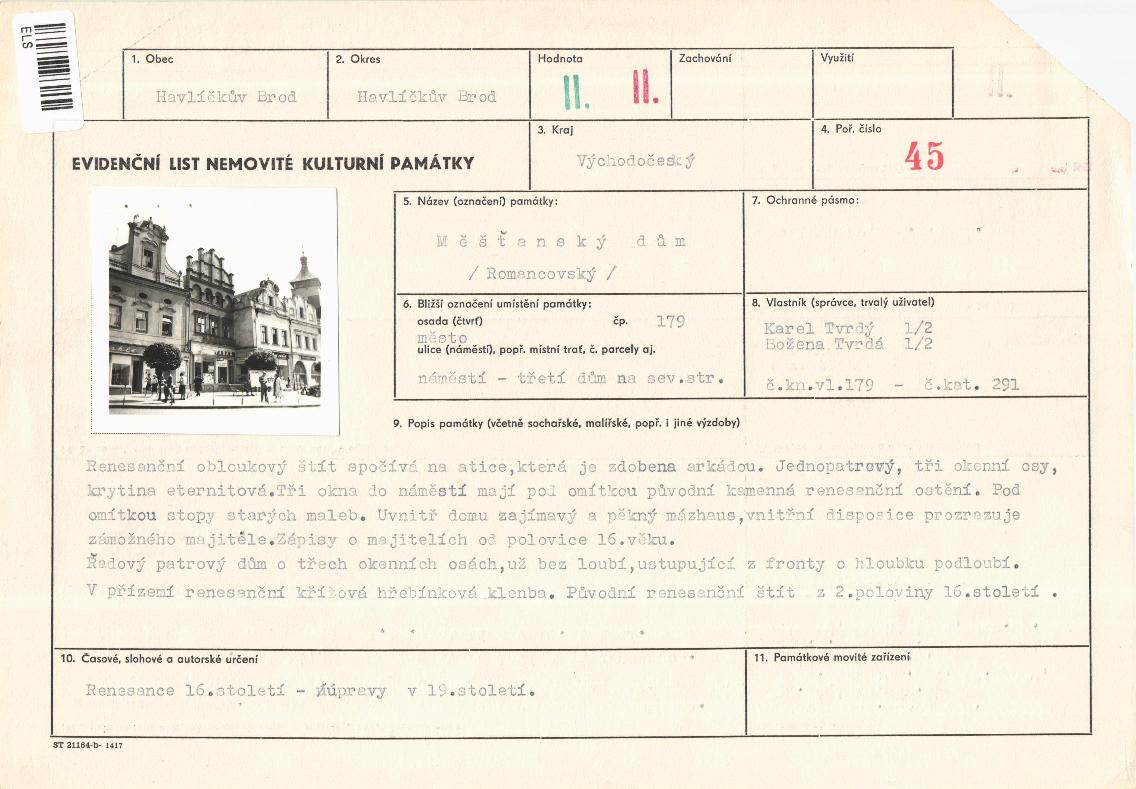 ELS
1. Obec
2. Okres
Hodnota
Zachování
Využití
Havlíčkův Brod
Havlíčkův Brod
II.
II.
II.
3. Kraj
4. Poř. číslo
EVIDENČNÍ LIST NEMOVITÉ KULTURNÍ PAMÁTKY
Východočeský
45
5. Název (označení) památky:
7. Ochranné pásmo:
Měšťanský dům
/ Romancovský /
6. Bližší označení umístění památky:
8. Vlastník (správce, trvalý uživatel)
osada (čtvrť)
čp. 179
Karel Tvrdý 1/2
město
Božena Tvrdá 1/2
ulice (náměstí), popř. místní trať, č. parcely aj.
náměstí - třetí dům na sev.str.
č.kn.vl.179 - č.kat. 291
9. Popis památky (včetně sochařské, malířské, popř. i jiné výzdoby)
Renesanční obloukový štít spočívá na atice,která je zdobena arkádou. Jednopatrový, tři okenní osy,
krytina eternitová.Tři okna do náměstí mají pod omítkou původní kamenná renesanční ostění. Pod
omítkou stopy starých maleb. Uvnitř domu zajímavý a pěkný mázhaus,vnitřní disposice prozrazuje
zámožného majitele.Zápisy o majitelích od polovice 16.věku.
Řadový patrový dům o třech okenních osách,už bez loubí,ustupující z fronty o hloubku podloubí.
V přízemí renesanční křížová hřebínková klenba. Původní renesanční štít z 2.poloviny 16.století .
10. Časové, slohové a autorské určení
11. Památkové movité zařízení
Renesance 16.století - úpravy v 19.století.
ST 21164-b- 1417